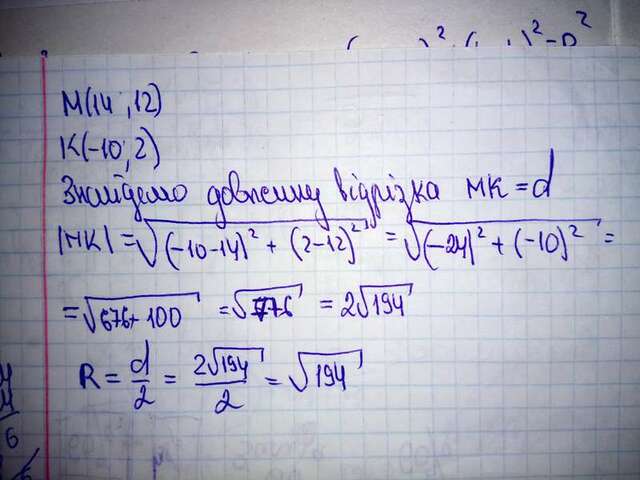 M(14; 12)
K(-10; 2)
Знайдемо довжину відрізка MK = d
|MK| = √((-10-14)² + (2-12)²) = √((-24)² + (-10)²) =
= √(676+100) = √776 = 2√194
R = d/2 = 2√194/2 = √194